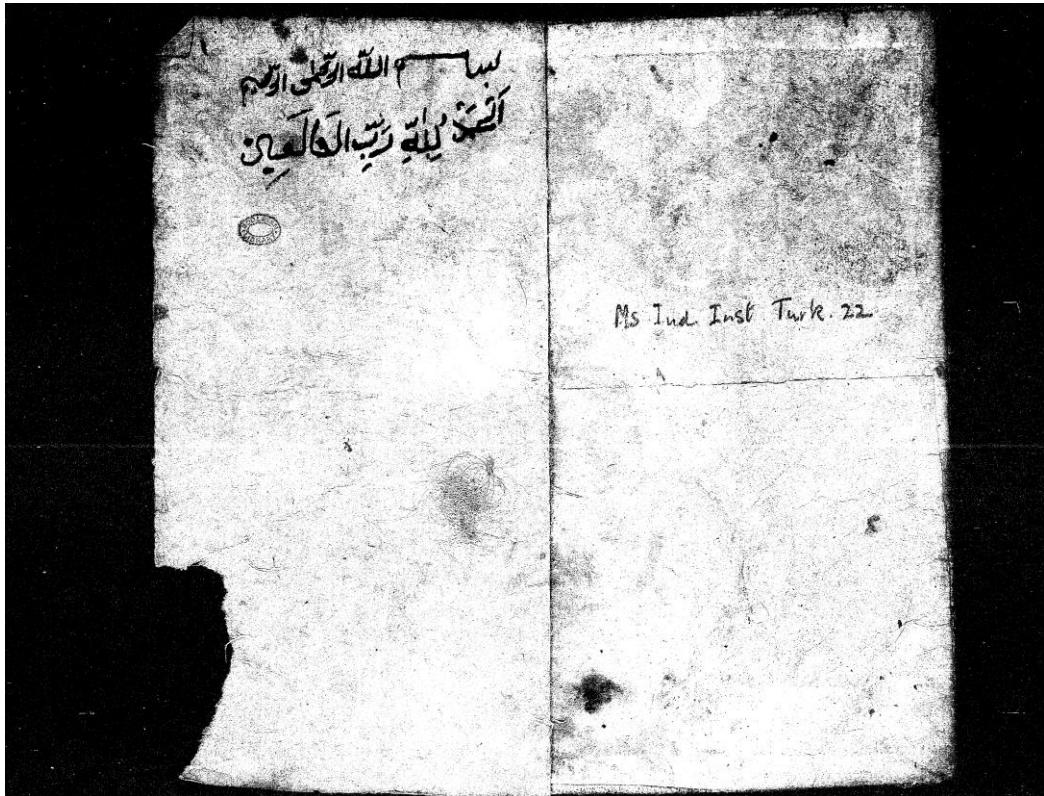 بسم الله الرحمن الرحيم
اَلْحَمْدُ لِلّٰهِ رَبِّ الْعَالَمِينَ
Ms Ind. Inst Turk. 22